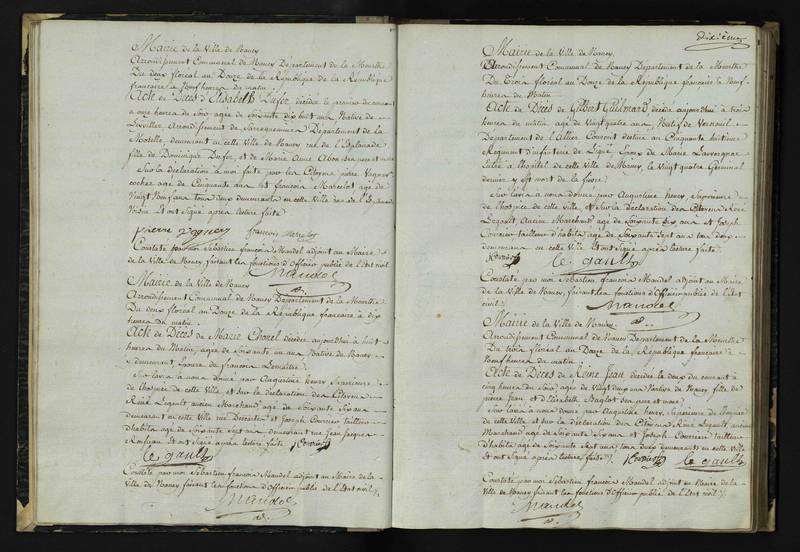 Mairie de la Ville de Nancy
Arrondissement Communal de Nancy Département de la Meurthe
Du deux floréal an Douze de la République de la République
française à Neuf heures du matin
Acte de Décès d'Elisabeth décédée le premier du courant
à onze heures du soir âgée de soixante dix huit ans Native de
Arrondissement de Sarreguemines Département de la
Moselle, demeurant en cette Ville rue de l'Esplanade
fille de Dominique et de Marie Anne ses père et mère
Sur la déclaration à moi faite par les Citoyens pierre Vagner
cocher âgé de Cinquante ans et françois Marcelot âgé de
Vingt Neuf ans tous deux demeurants en cette Ville
Et ont signé après lecture faite
pierre vagner françois
Constaté par moi Sébastien françois Mandel adjoint au Maire
de la Ville de Nancy faisant les fonctions d'Officier public de l'Etat civil
Mandel
Mairie de la Ville de Nancy
Arrondissement Communal de Nancy Département de la Meurthe
Du deux floréal an Douze de la République française à dix
heures du matin
Acte de Décès de Marie décédée aujourd'hui à huit
heures du Matin, âgée de soixante un ans Native de Nancy
y demeurant, Epouse de françois Lemaitre
Sur l'avis à nous donné par Augustine henry Supérieure
de l'hospice de cette Ville et sur la déclaration des Citoyens
René Legault ancien Marchand, âgé de soixante six ans
demeurant en cette Ville et Joseph Courrier tailleur
d'habits âgé de soixante sept ans demeurant rue Jean Jacques
Rousseau Et ont signé après lecture faite JCourrier
le gault
Constaté par moi Sébastien françois Mandel adjoint au Maire de la
Ville de Nancy faisant les fonctions d'Officier public de l'Etat civil
Mandel
Dixième
Mairie de la Ville de Nancy
Arrondissement Communal de Nancy Département de la Meurthe
Du Trois floréal an Douze de la République française à Neuf
heures du Matin
Acte de Décès de Gilbert décédé aujourd'hui à trois
heures du matin âgé de Vingt quatre ans, Natif de Verneuil
Département de l'Allier Conscrit destiné au Cinquante huitième
Régiment d'infanterie de Ligne Epoux de Marie
Entré à l'hopital de cette Ville de Nancy, le vingt quatre Germinal
dernier y est mort de la fièvre
Sur l'avis à nous donné par Augustine henry, Supérieure
de l'hospice de cette ville, et sur la déclaration des Citoyens René
Legault, ancien Marchand, âgé de soixante six ans et Joseph
Courrier tailleur d'habits âgé de soixante sept ans tous deux
demeurans en cette Ville Et ont signé après lecture faite
JCourrier le gault
Constaté par moi Sébastien françois Mandel adjoint au Maire
de la Ville de Nancy, faisant les fonctions d'Officier public de l'Etat
civil
Mandel
Mairie de la Ville de Nancy
Arrondissement Communal de Nancy Département de la Meurthe
Du trois floréal an Douze de la République française à
Neuf heures du matin
Acte de Décès de Reine Jean décédée le deux du courant à
cinq heures du soir âgée de Vingt deux ans Native de Nancy fille de
pierre Jean et d'Elisabeth ses père et mère
Sur l'avis à nous donné par Augustine henry, Supérieure de l'hospice
de cette Ville et sur la déclaration des Citoyens René Legault, ancien
Marchand âgé de soixante six ans et Joseph Courrier tailleur
d'habits âgé de soixante sept ans, tous deux demeurans en cette Ville
Et ont signé après lecture faite JCourrier le gault
Constaté par moi Sébastien françois Mandel adjoint au Maire de la
Ville de Nancy faisant les fonctions d'Officier public de l'Etat civil
Mandel